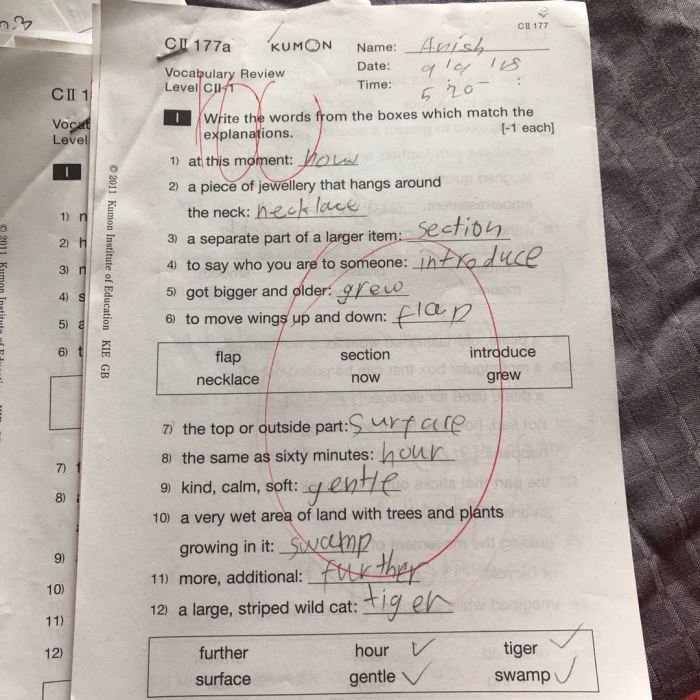 CII 177
CII 177a KUMON Name: Anish
Vocabulary Review Date: 9/9/
Level CII-1 Time: 5 20 :
100
1 Write the words from the boxes which match the
explanations. [-1 each]
1) at this moment: now
2) a piece of jewellery that hangs around
the neck: necklace
3) a separate part of a larger item: section
4) to say who you are to someone: introduce
5) got bigger and older: grew
6) to move wings up and down: flap
flap section introduce
necklace now grew
7) the top or outside part: Surface
8) the same as sixty minutes: hour
9) kind, calm, soft: gentle
10) a very wet area of land with trees and plants
growing in it: swamp
11) more, additional: further
12) a large, striped wild cat: tiger
further hour ✓ tiger ✓
surface gentle ✓ swamp ✓
© 2011 Kumon Institute of Education KIE GB
CII 1
Vocab
Level
1
1) n
2) h
3) n
4) s
5) a
6) t
7)
8)
9)
10)
11)
12)
© 2011 Kumon Institute of